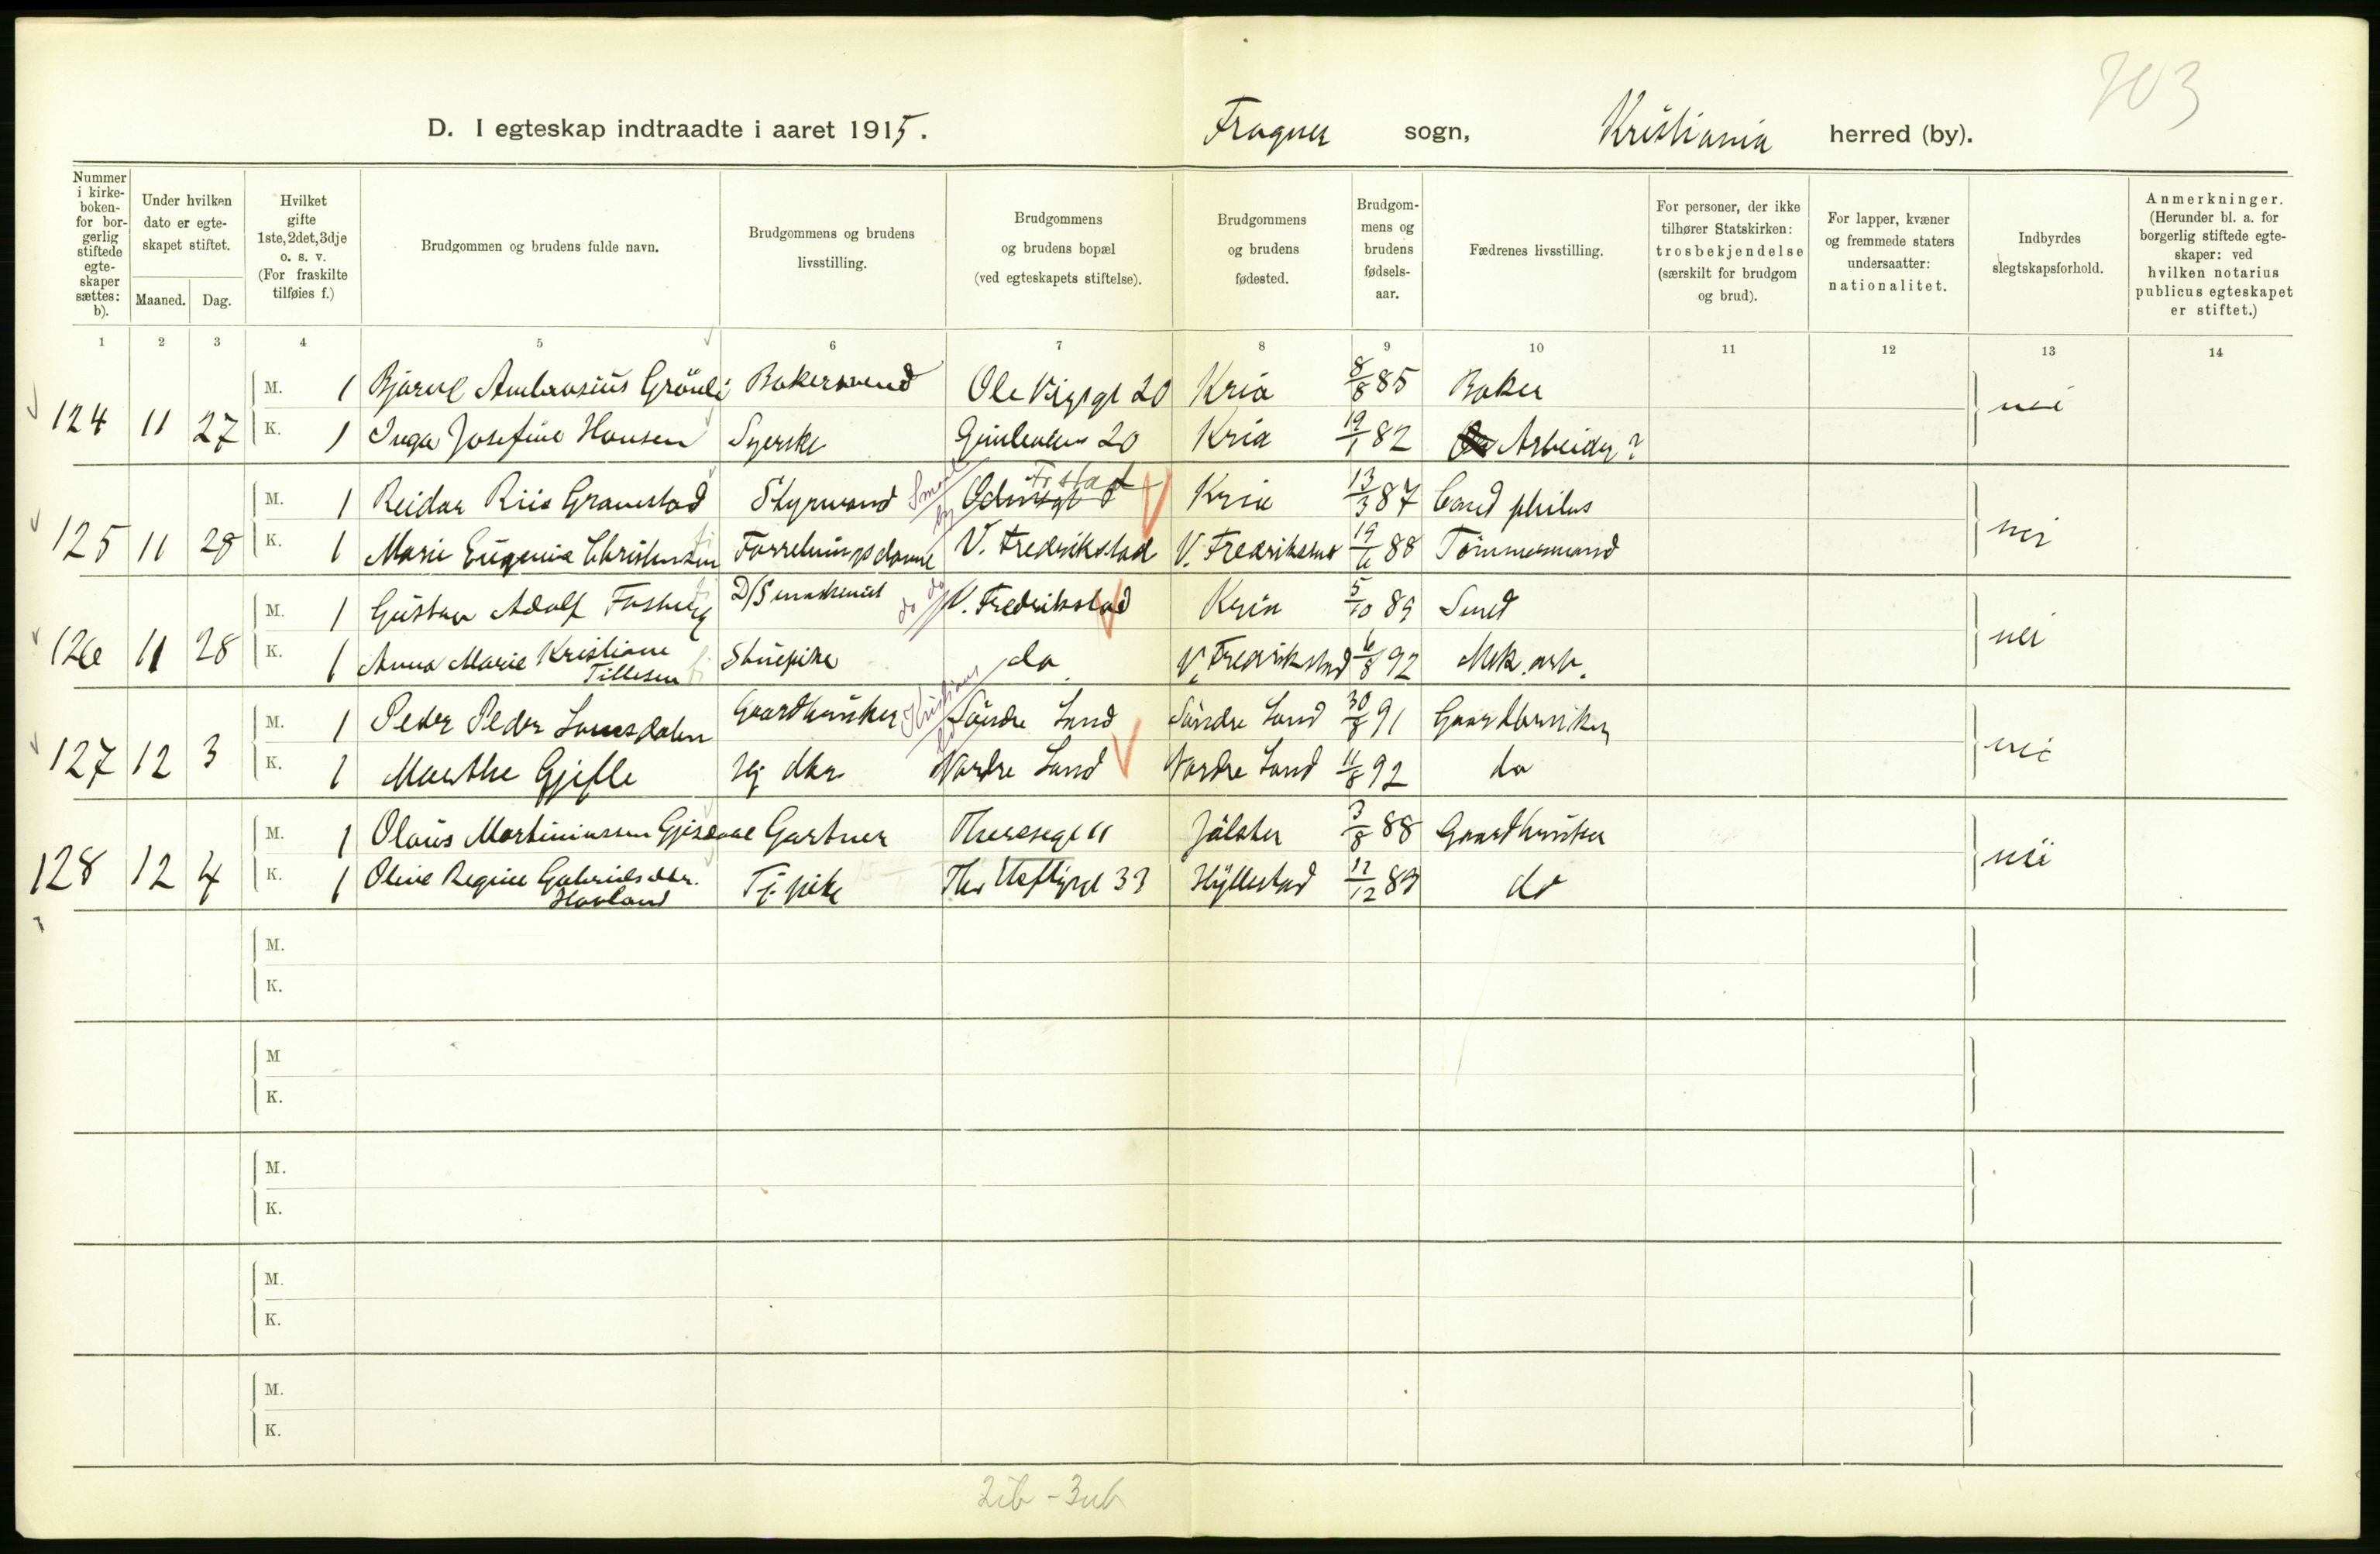 703
D. I egteskap indtraadte i aaret 1915. Frogner sogn, Kristiania herred (by).
Nummer i kirke-boken- for bor-gerlig stiftede egte-skaper sættes: b).
Under hvilken dato er egte-skapet stiftet.
Maaned. Dag.
Hvilket gifte 1ste, 2det, 3dje o. s. v. (For fraskilte tilføies f.)
Brudgommen og brudens fulde navn.
Brudgommens og brudens livsstilling.
Brudgommens og brudens bopæl (ved egteskapets stiftelse).
Brudgommens og brudens fødested.
Brudgom-mens og brudens fødsels-aar.
Fædrenes livsstilling.
For personer, der ikke tilhører Statskirken: trosbekjendelse (særskilt for brudgom og brud).
For lapper, kvæner og fremmede staters undersaatter: nationalitet.
Indbyrdes slegtskapsforhold.
Anmerkninger. (Herunder bl. a. for borgerlig stiftede egte-skaper: ved hvilken notarius publicus egteskapet er stiftet.)
1 2 3 4 5 6 7 8 9 10 11 12 13 14
M. 1 Ambrosius Grönli Bakersvend Ole Vigsgt 20 Kria 8/8 85 Baker
124 11 27 K. 1 Inga Josefine Hansen Syerske 20 Kria 19/1 82 Arbeider? nei
M. 1 Reidar Riis Gravestad Styrmand Frstad Kria 13/3 87 Cand philos
125 11 28 K. 1 Marie Eugenie Christensen Forretningsdame V. Fredrikstad V. Fredrikstad 19/6 88 Tömmermand nei
M. 1 Gustav Adolf Fosberg D/S maskinist do do V. Fredrikstad Kria 5/10 89 Smed
126 11 28 K. 1 Anna Marie Kristiane Tillesen Stuepike do. V. Fredrikstad 6/8 92 Mek. arb. nei
M. 1 Peder Peder Gaardbruker Kristians Söndre Land Söndre Land 30/8 91 Gaardbruker
127 12 3 K. 1 Marthe Gjefle Nordre Land Nordre Land 11/8 92 do nei
M. 1 Olaus Martiniussen Gartner Theresegt 11 Jölster 3/8 88 Gaardbruker
128 12 4 K. 1 Oline Regine Gabrielsdtr. Hovland Tj. pike Ths Heftyesgt 33 Hyllestad 12 83 do nei
M.
K.
M
K.
M.
K.
M.
K.
M.
K.
2ib - 3ub